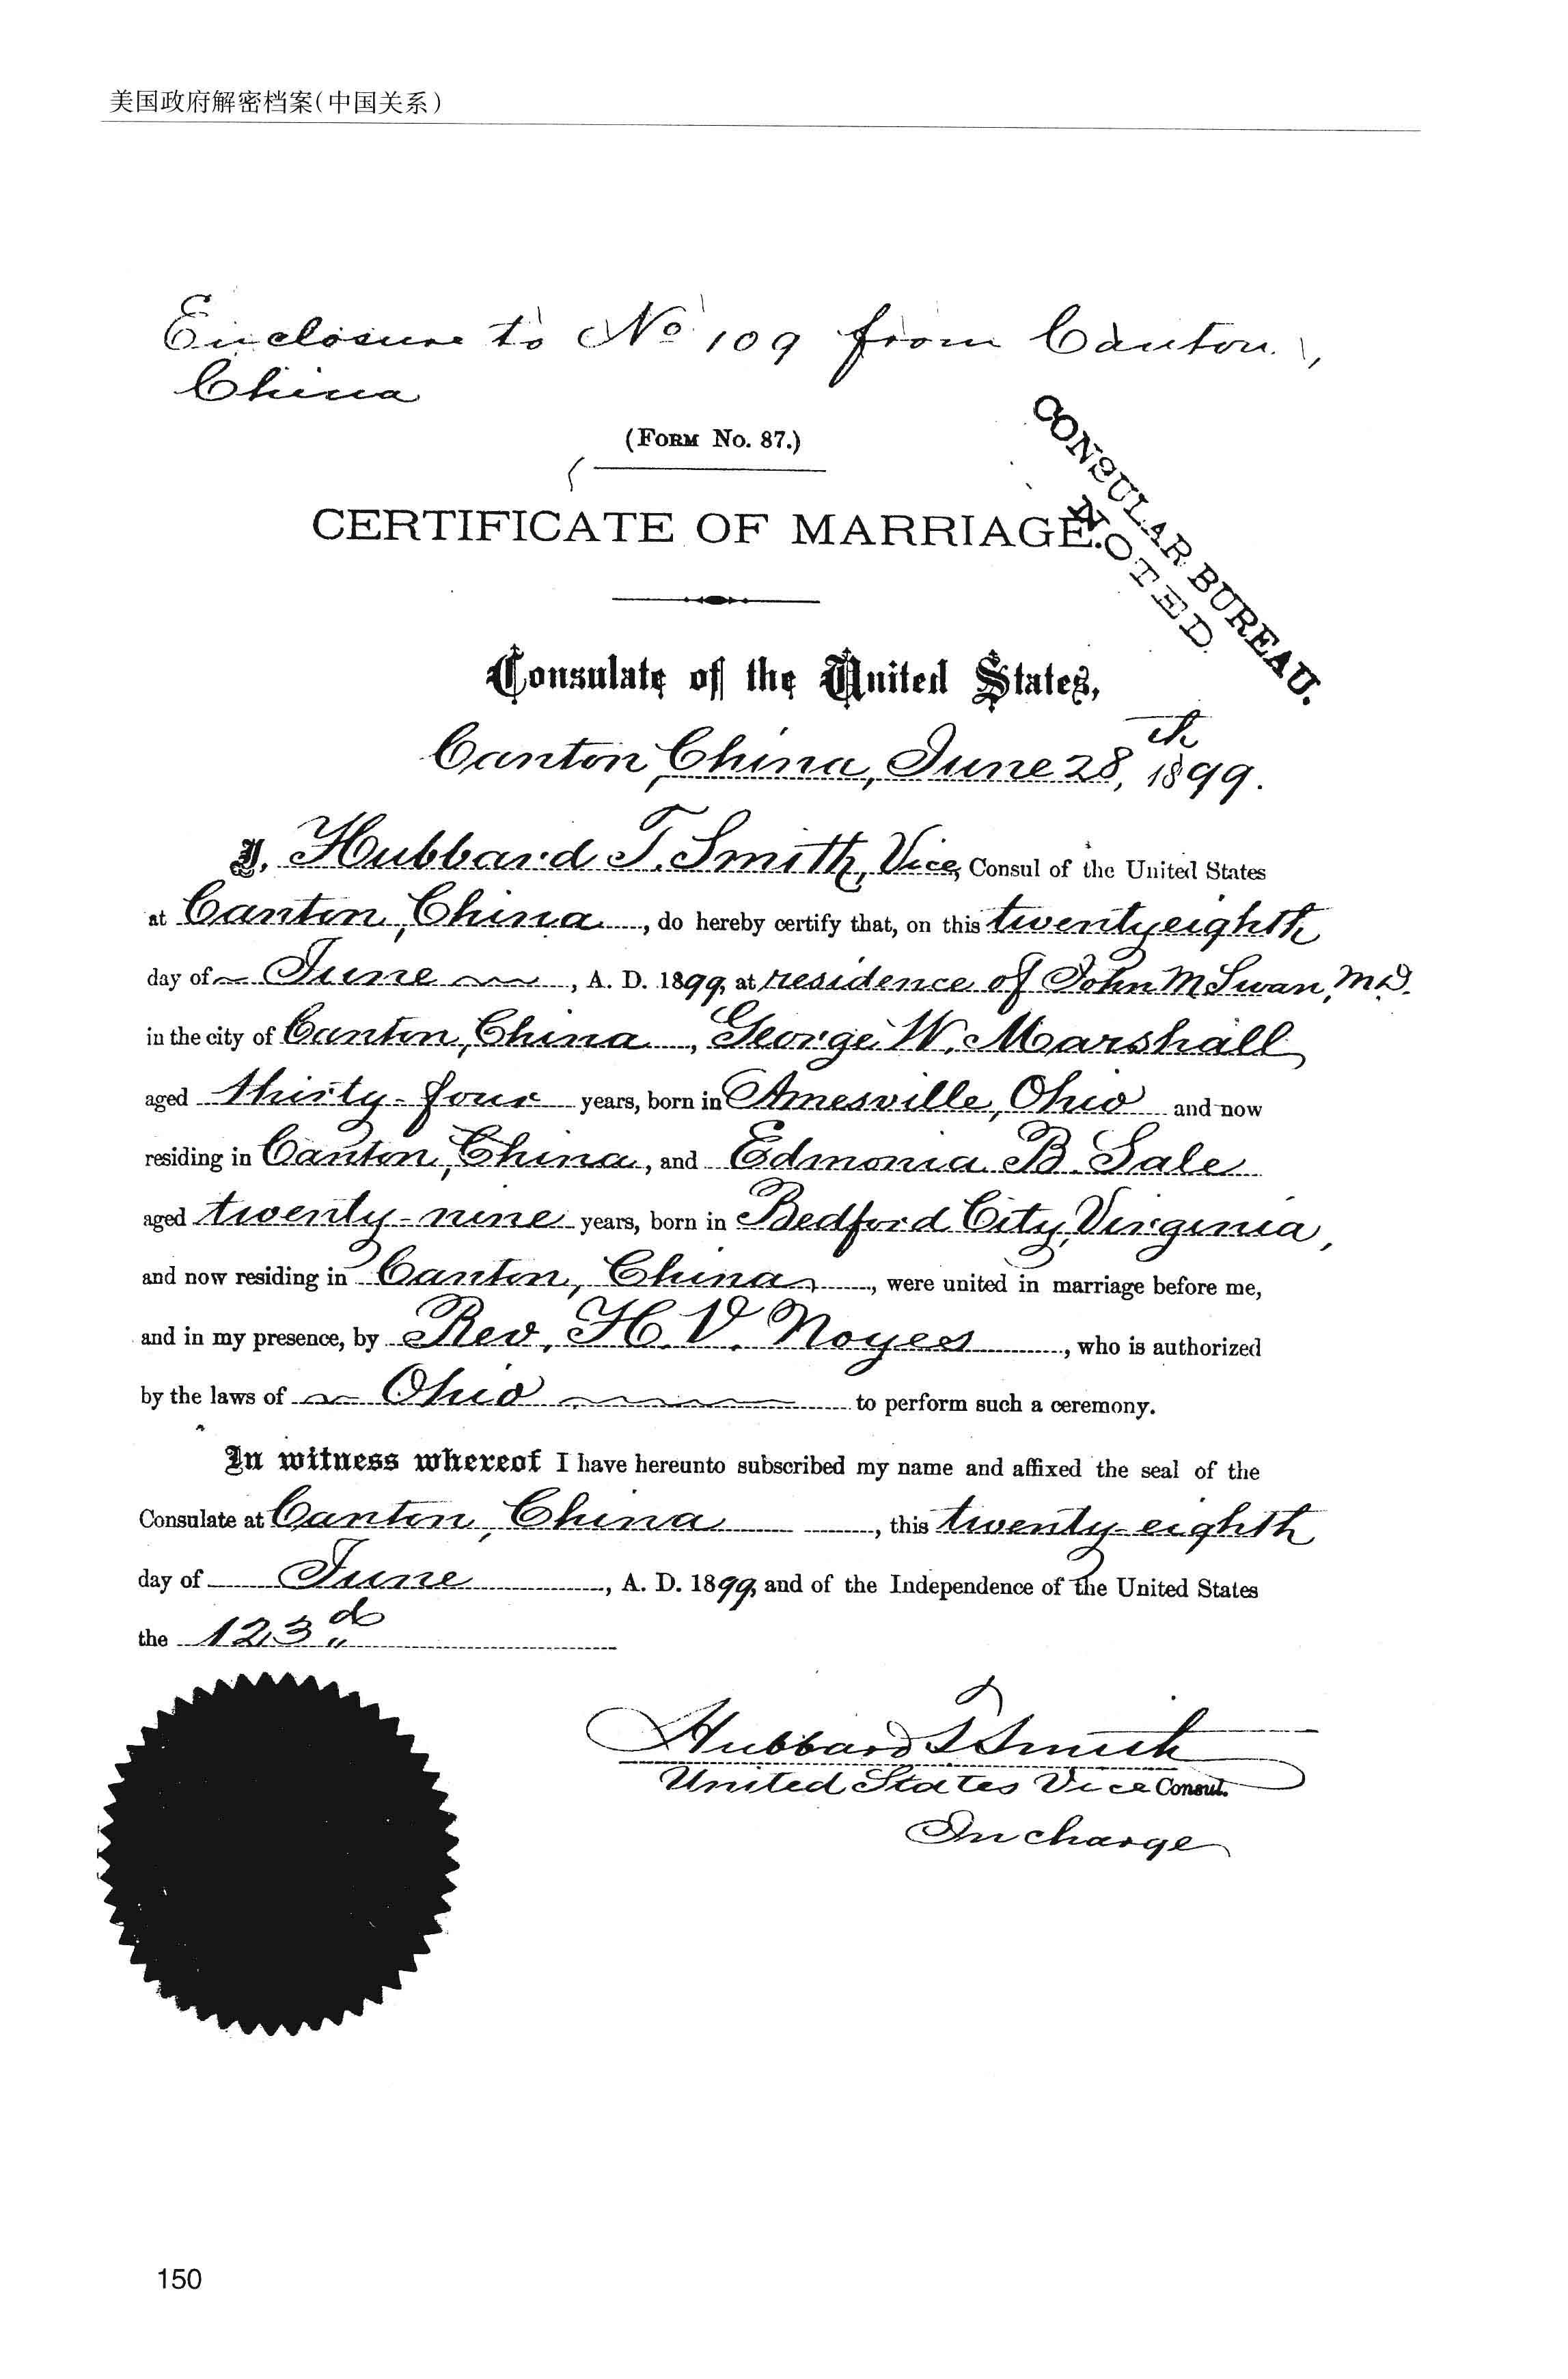 美国政府解密档案(中国关系)
Enclosure to No 109 from Canton,
China
(FORM No. 87.)
CERTIFICATE OF MARRIAGE.
CONSULAR BUREAU.
NOTED
Consulate of the United States,
Canton, China, June 28th, 1899.
I, Hubbard T. Smith, Vice, Consul of the United States
at Canton, China, do hereby certify that, on this twenty eighth
day of June, A. D. 1899, at residence of John M Swan, M.D.
in the city of Canton, China, George W. Marshall
aged thirty-four years, born in Amesville, Ohio and now
residing in Canton, China, and Edmonia B. Sale
aged twenty-nine years, born in Bedford City, Virginia,
and now residing in Canton, China, were united in marriage before me,
and in my presence, by Rev. H. V. Noyes, who is authorized
by the laws of Ohio to perform such a ceremony.
In witness whereof I have hereunto subscribed my name and affixed the seal of the
Consulate at Canton, China, this twenty-eighth
day of June, A. D. 1899, and of the Independence of the United States
the 123d
Hubbard T Smith
United States Vice Consul.
In charge
150